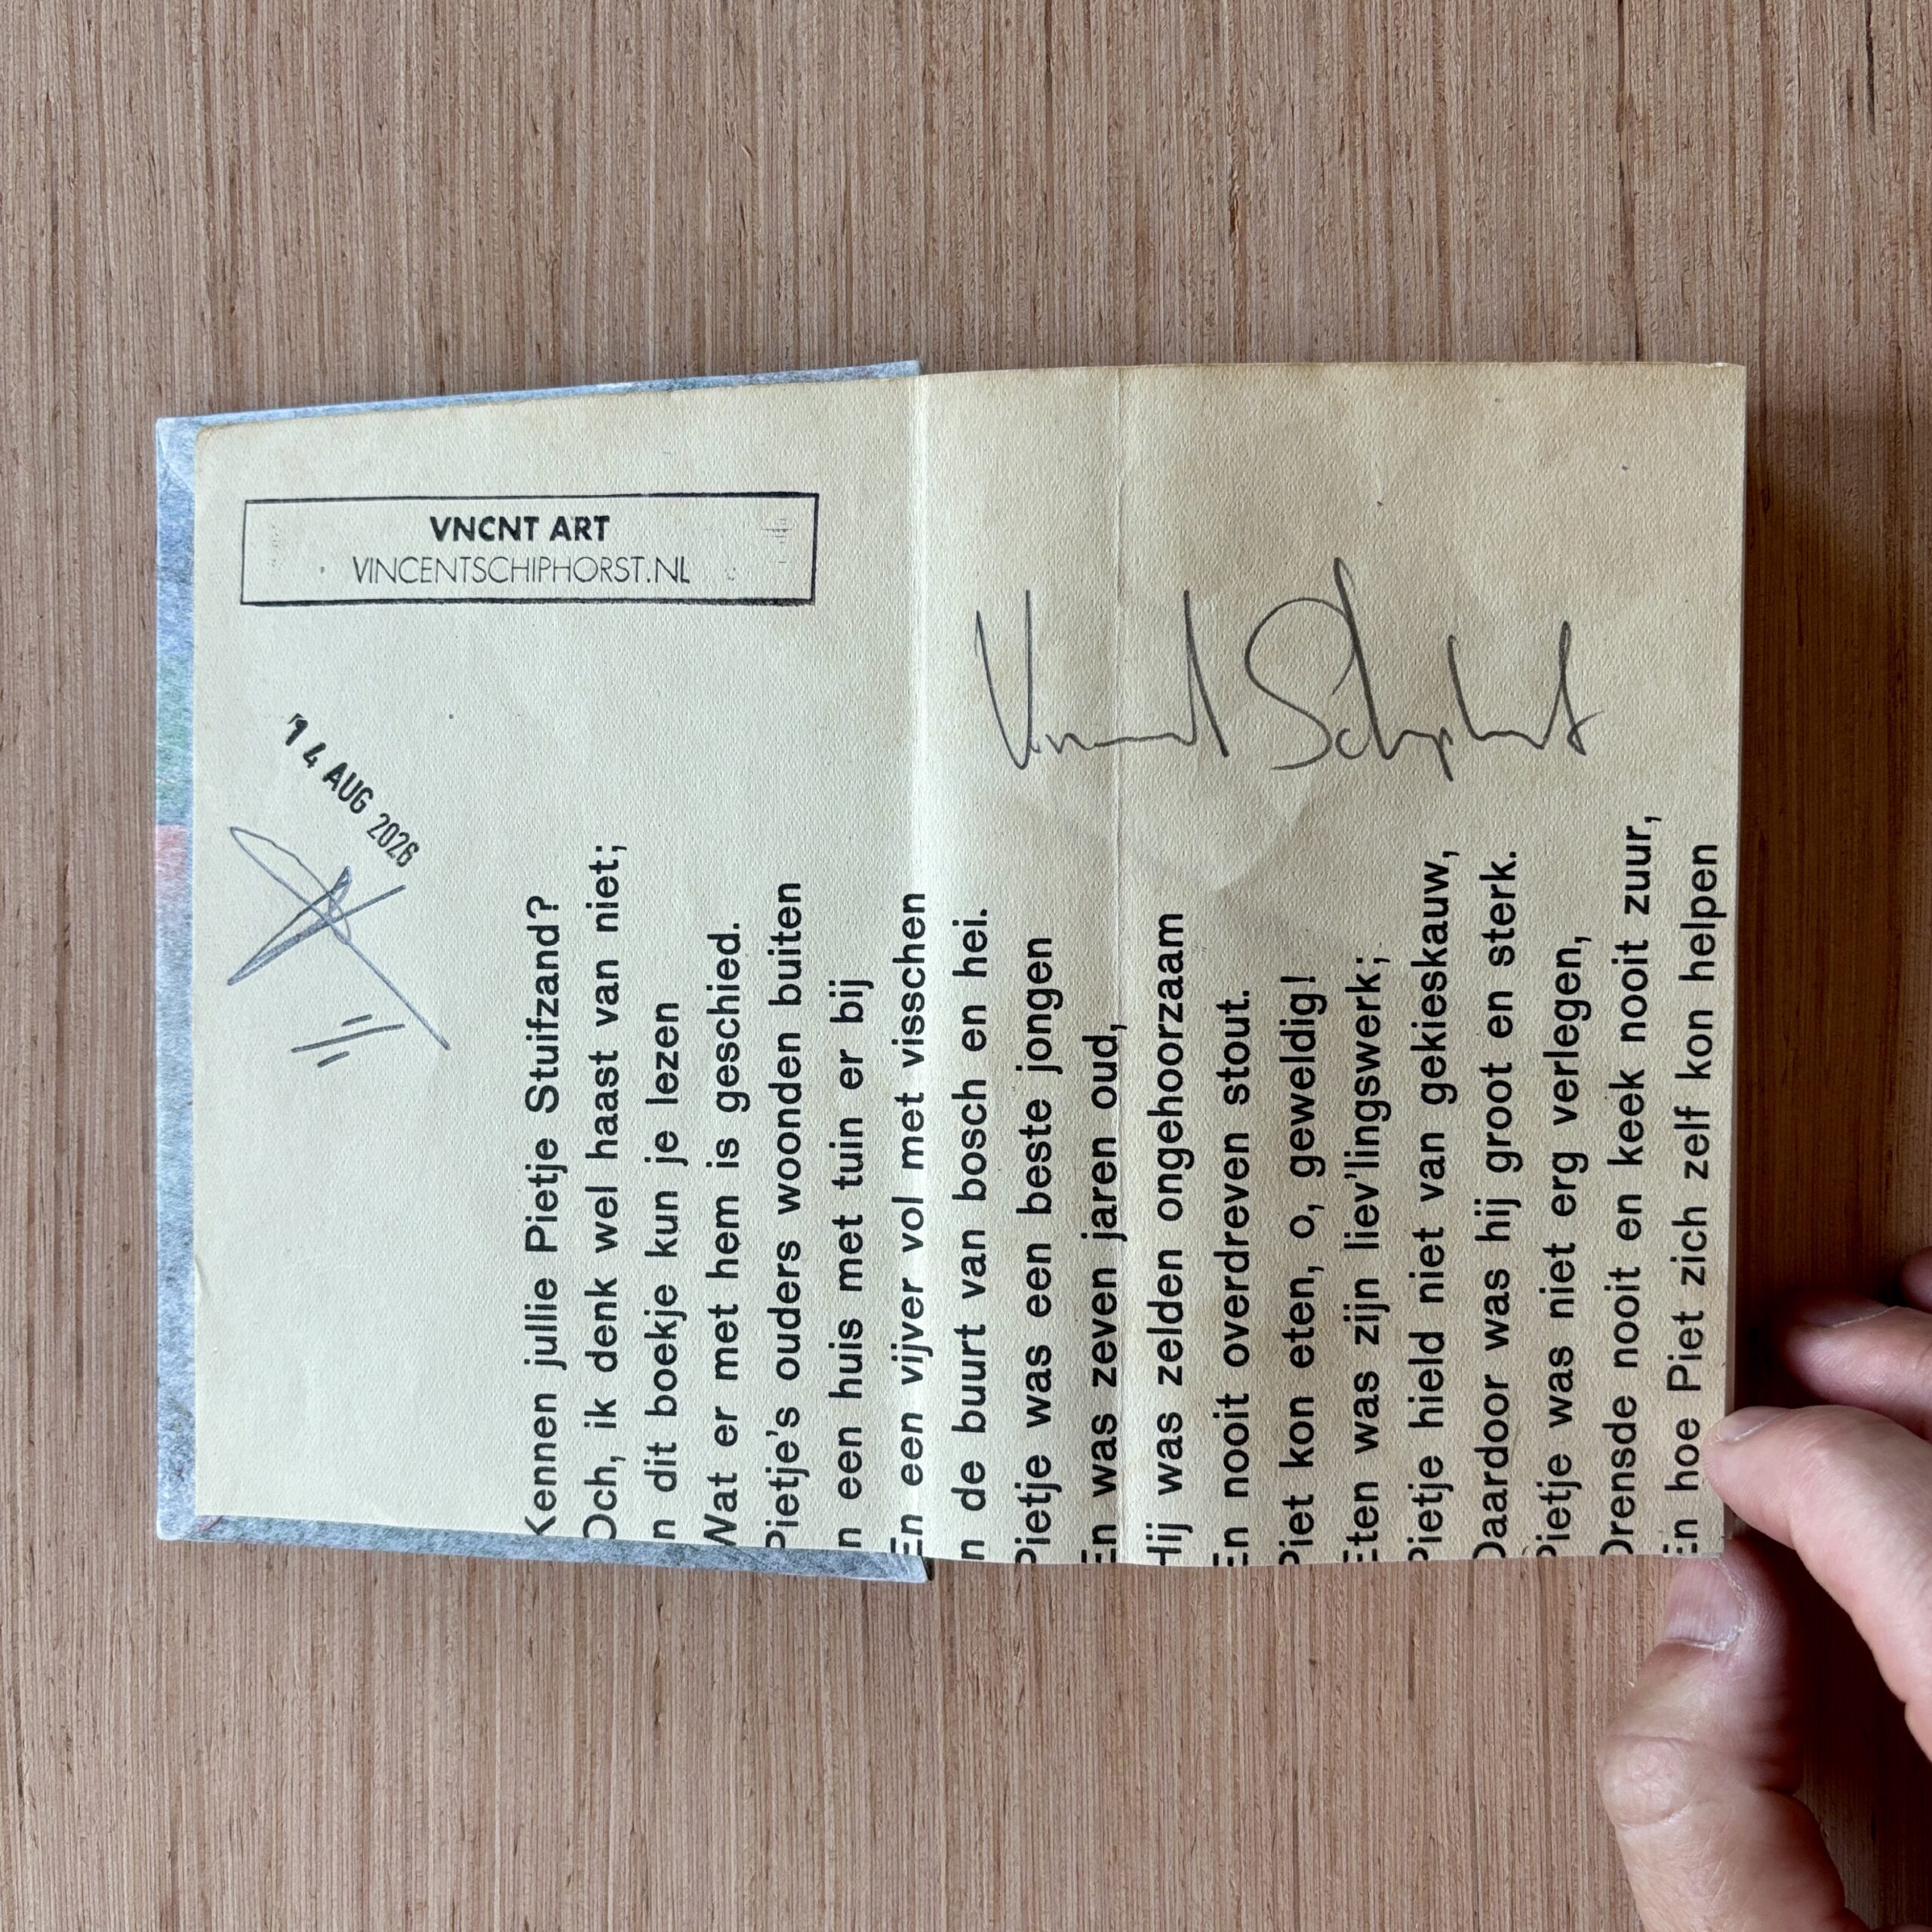 VNCNT ART
VINCENTSCHIPHORST.NL
14 AUG 2026
Vincent Schiphorst
Kennen jullie Pietje Stuifzand?
Och, ik denk wel haast van niet;
n dit boekje kun je lezen
Wat er met hem is geschied.
Pietje's ouders woonden buiten
n een huis met tuin er bij
En een vijver vol met visschen
n de buurt van bosch en hei.
Pietje was een beste jongen
En was zeven jaren oud,
Hij was zelden ongehoorzaam
En nooit overdreven stout.
Piet kon eten, o, geweldig!
Eten was zijn liev'lingswerk;
Pietje hield niet van gekieskauw,
Daardoor was hij groot en sterk.
Pietje was niet erg verlegen,
Drensde nooit en keek nooit zuur,
En hoe Piet zich zelf kon helpen